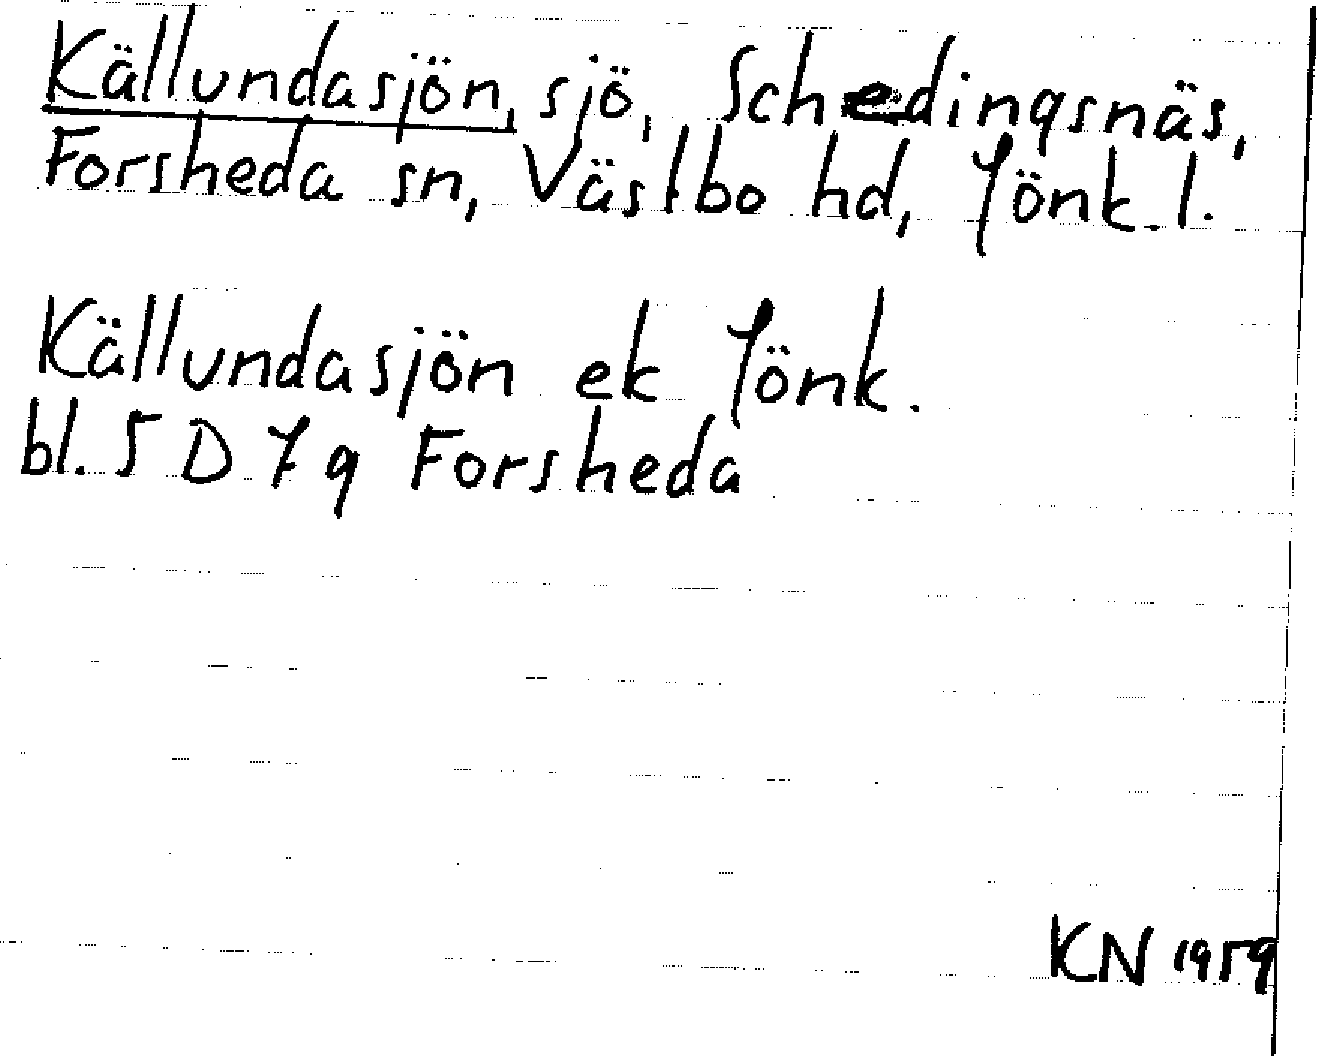 Källundasjön, sjö, Schedingsnäs,
Forsheda sn, Västbo hd, Jönk. l.
Källundasjön ek Jönk.
bl. 5 D 7 g Forsheda
KN 1959